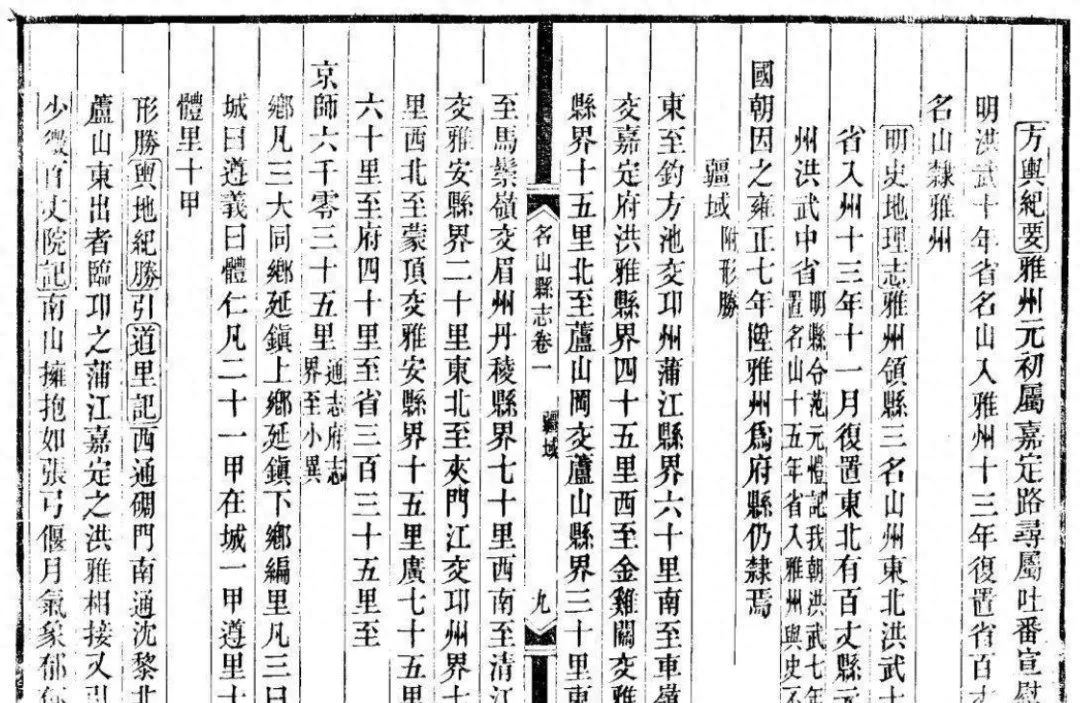 方輿紀要雅州元初屬嘉定路尋屬吐番宣慰
明洪武十年省名山入雅州十三年復置省百
名山隸雅州
明史地理志雅州領縣三名山州東北洪武十
省入州十三年十一月復置東北有百丈縣元
州洪武中省明縣令范元禮記我朝洪武七年
置名山十五年省入雅州與史不
國朝因之雍正七年陞雅州爲府縣仍隸焉
疆域附形勝
東至釣方池交邛州蒲江縣界六十里南至車嶺
交嘉定府洪雅縣界四十五里西至金雞關交雅
縣界十五里北至蘆山岡交蘆山縣界三十里東
名山縣志卷一 疆域 九
至馬鬃嶺交眉州丹稜縣界七十里西南至清江
交雅安縣界二十里東北至夾門江交邛州界七
里西北至蒙頂交雅安縣界十五里廣七十五里
六十里至府四十里至省三百三十五里至
京師六千零三十五里通志府志
界至小異
鄉凡三大同鄉延鎮上鄉延鎮下鄉編里凡三曰
城曰遵義曰體仁凡二十一甲在城一甲遵里十
體里十甲
形勝輿地紀勝引道里記西通碉門南通沈黎北
蘆山東出者臨邛之蒲江嘉定之洪雅相接又引
少微百丈院記南山擁抱如張弓偃月氣象郁